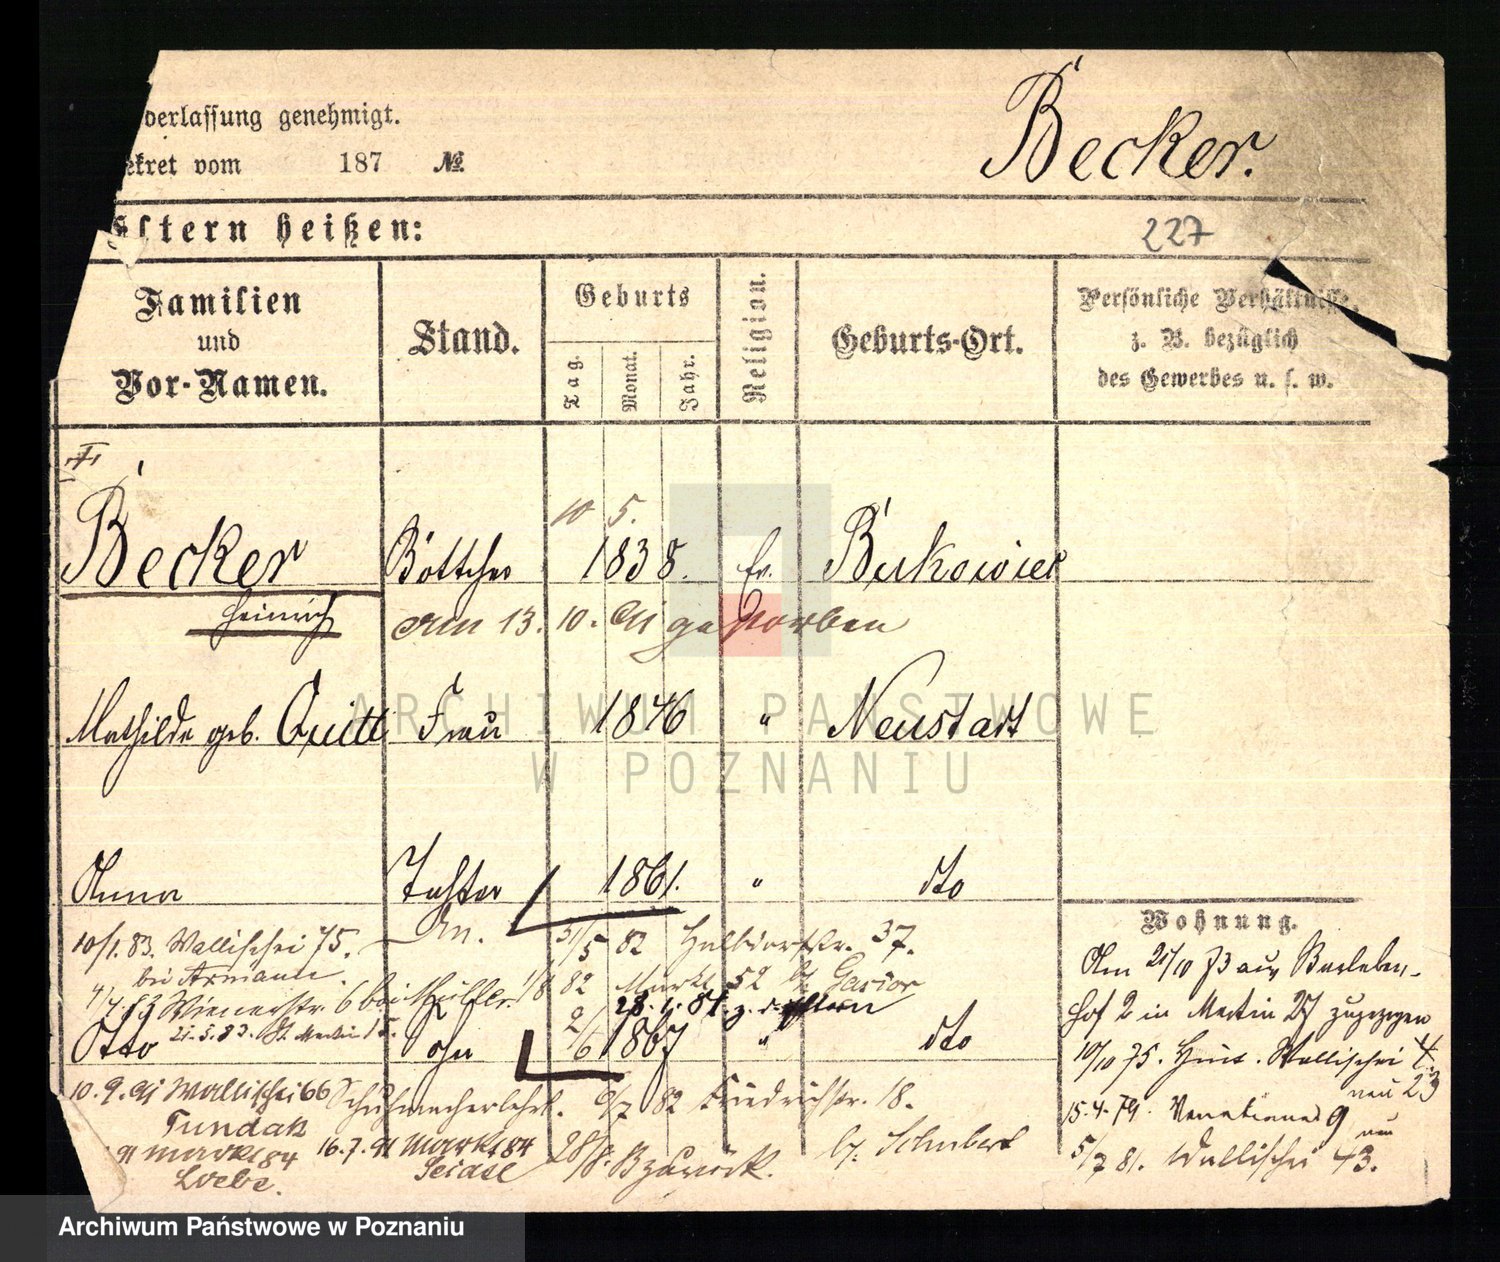 derlassung genehmigt.
ekret vom 187 №
Becker.
Eltern heißen:
227
Familien und Vor-Namen.
Stand.
Geburts
Tag.
Monat.
Jahr.
Religion.
Geburts-Ort.
Persönliche Verhältnisse,
z. B. bezüglich
des Gewerbes u. s. w.
10 5.
Becker Böttcher 1838. ev. Bukowiec
Heinrich
am 13. 10. 91 gestorben
Mathilde geb. Quitt Frau 1846 " Neustadt
Anna Tochter 1861. " dto
Wohnung.
10/1. 83. Wallischei 75. 31/5 82 Halbdorfstr. 37.
bei
4/4. 83 Wienerstr. 6 bei 1/8 82 Markt 52
28. 1. 81. z. d. Eltern
21.5.83. St. Martin
Otto Sohn 2/6 1867 " dto
10. 9. 91 Wallischei 66 Schuhmacherlehrl. 9/7 82 Friedrichstr. 18.
Tundak
91 Markt 84 16.7.91 Markt 84 28/8. zurück. b/ Schubert
Loebe. Seidel
Am 21/10 73 aus
Hof 2 in Martin 27 zugezogen
10/10 75. Wallischei 4.
neu 23
15.4.79. Venetianer 9
neu
5/7 81. Wallischei 43.
Archiwum Państwowe w Poznaniu
ARCHIWUM PAŃSTWOWE
W POZNANIU